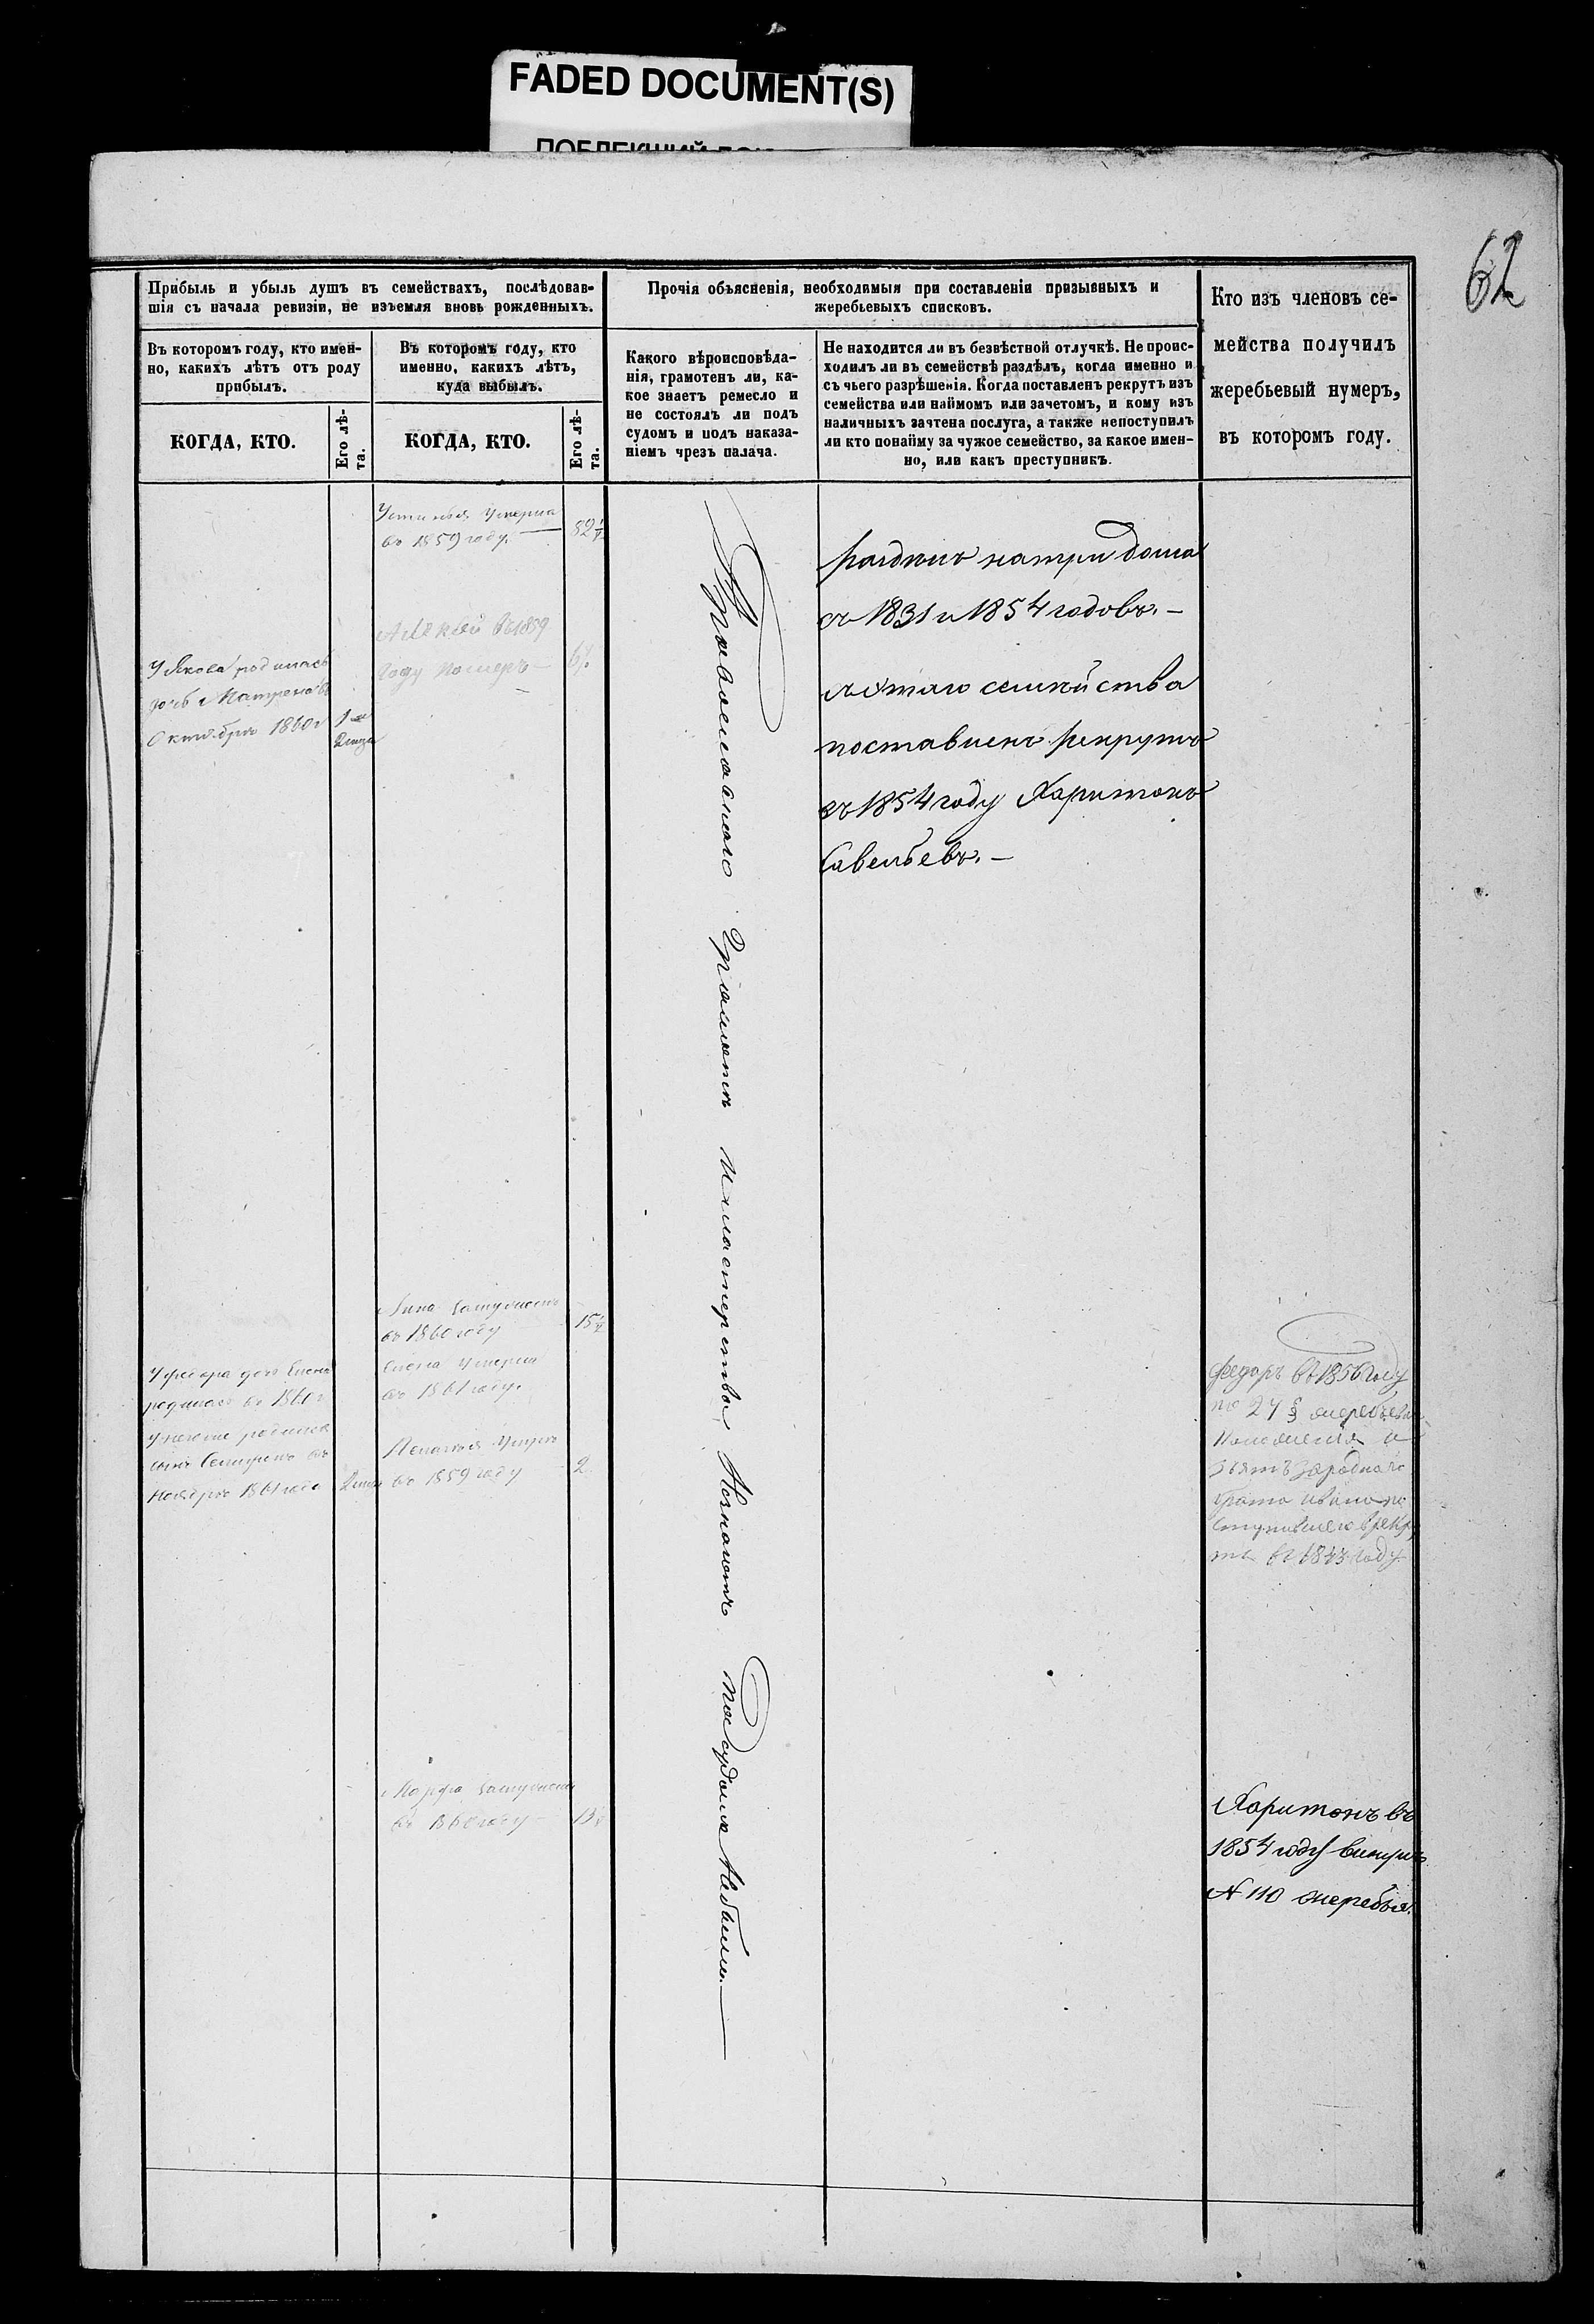 FADED DOCUMENT(S)
62
Прибыль и убыль душъ въ семействахъ, послѣдовав-
шія съ начала ревизіи, не изъемля вновь рожденныхъ.
Въ которомъ году, кто имен-
но, какихъ лѣтъ отъ роду
прибылъ.
КОГДА, КТО.
Его лѣ-
та.
Въ которомъ году, кто
именно, какихъ лѣтъ,
куда выбылъ.
КОГДА, КТО.
Его лѣ-
та.
Прочія объясненія, необходимыя при составленіи призывныхъ и
жеребьевыхъ списковъ.
Какого вѣроисповѣда-
нія, грамотенъ ли, ка-
кое знаетъ ремесло и
не состоялъ ли подъ
судомъ и подъ наказа-
ніемъ чрезъ палача.
Не находится ли въ безвѣстной отлучкѣ. Не проис-
ходилъ ли въ семействѣ раздѣлъ, когда именно и
съ чьего разрѣшенія. Когда поставленъ рекрутъ изъ
семейства или наймомъ или зачетомъ, и кому изъ
наличныхъ зачтена послуга, а также непоступилъ
ли кто понайму за чужое семейство, за какое имен-
но, или какъ преступникъ.
Кто изъ членовъ се-
мейства получилъ
жеребьевый нумеръ,
въ которомъ году.
У Якова родилась
дочь Матрена въ
Октябрѣ 1860г
У Федора дочь Елена
родилась въ 1860г
родился
сынъ въ
Ноябрѣ 1861 года
Устинья Умерла
въ 1859 году.
82
Алексѣй въ 1859
Году Померъ
Анна Замужъ
въ 1860 году
15
Елена Умерла
въ 1861 году.
въ 1859 году
2
Марфа Замужъ
въ 1860 году
13
Православнаго Грамотѣ и мастерства Незнаютъ подсудомъ Небыли.
раздѣлъ натри дома
съ 1831 и 1854 годовъ.
семѣйства
поставленъ рекрутъ
въ 1854 году Харитонъ
Савельевъ.
Федоръ въ 1856 Году
по 24 § жеребьева
Положенія и
Зачтъ Зароднаго
брата Ивана по
ступившаго врекру
ты въ 1843 Году
Харитонъ въ
1854 году вынулъ
№ 110 жеребья.